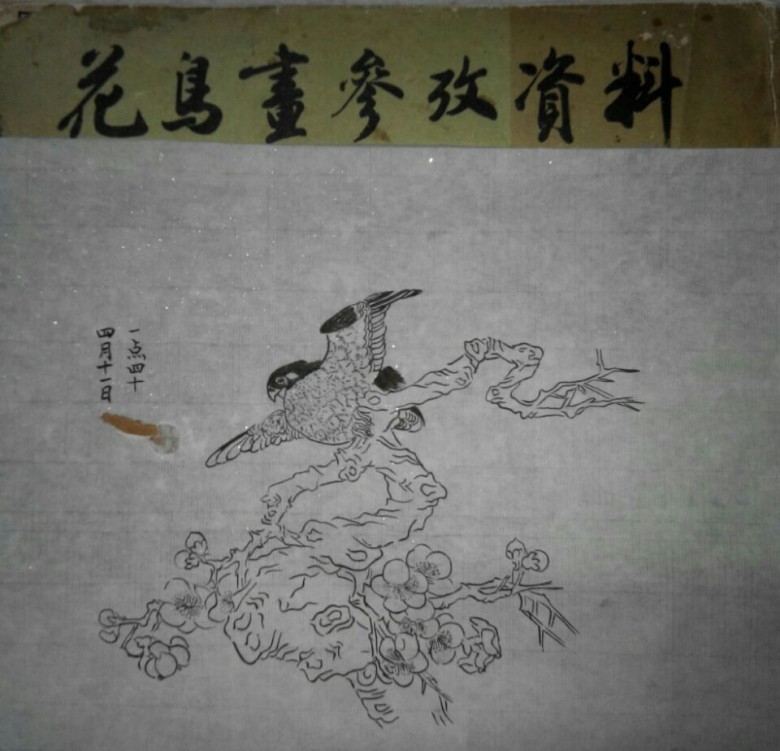 花鳥畫參攷資料
一点四十
四月十一日